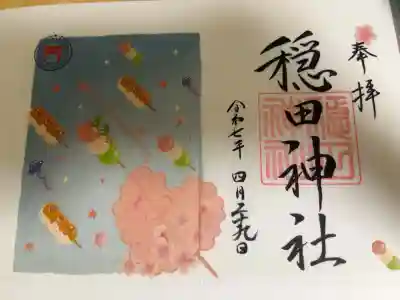 奉拝
穏田神社
令和七年 四月二十九日